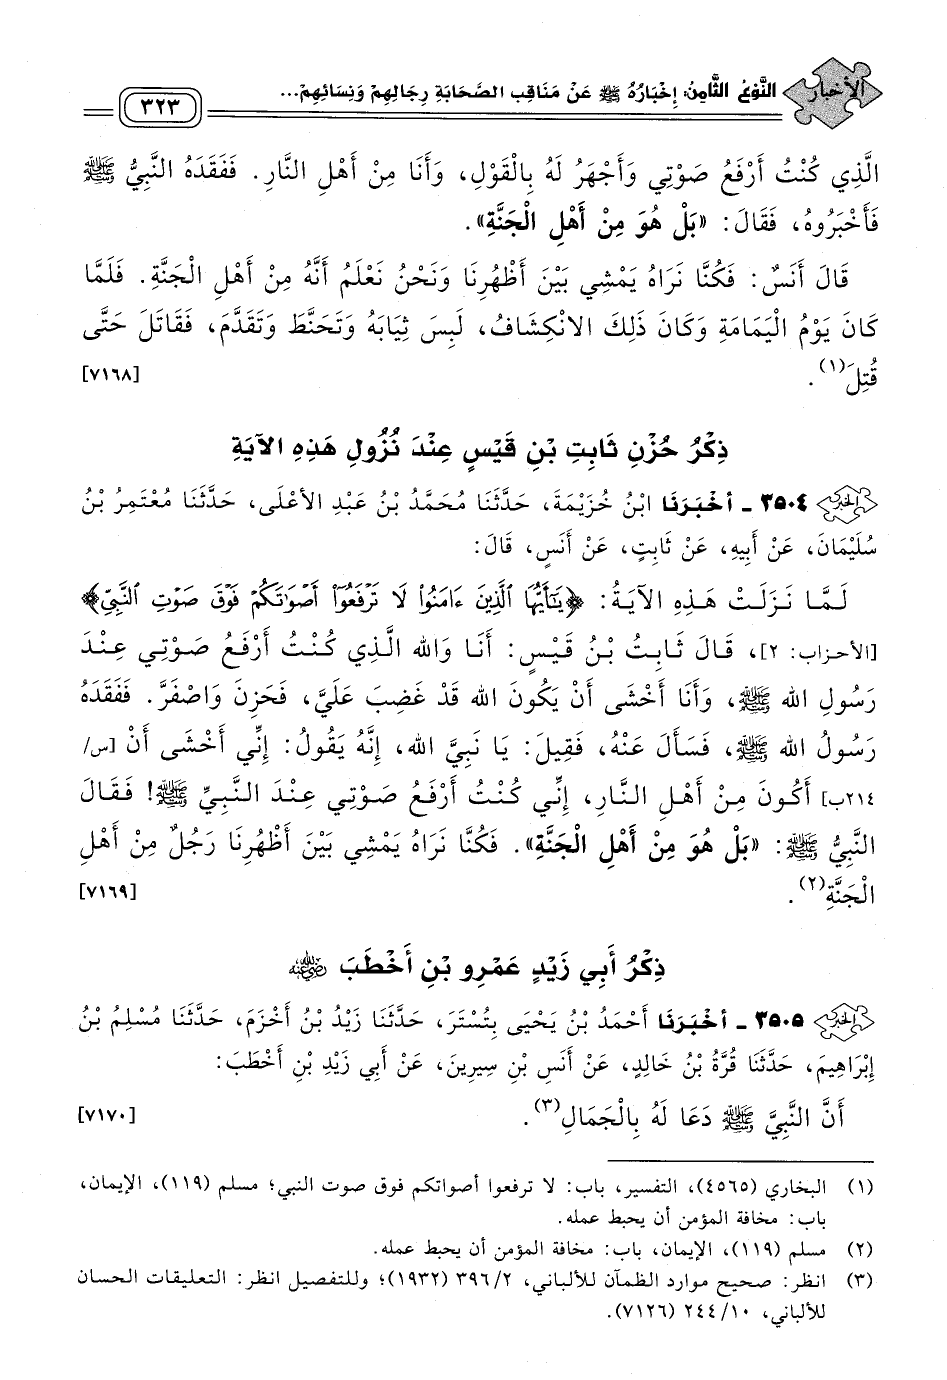 الأخبار النَّوْعُ الثَّامِنُ: إِخْبَارُهُ ﷺ عَنْ مَنَاقِبِ الصَّحَابَةِ رِجَالِهِمْ وَنِسَائِهِمْ... ٣٢٣
الَّذِي كُنْتُ أَرْفَعُ صَوْتِي وَأَجْهَرُ لَهُ بِالْقَوْلِ، وَأَنَا مِنْ أَهْلِ النَّارِ. فَفَقَدَهُ النَّبِيُّ ﷺ
فَأَخْبَرُوهُ، فَقَالَ: «بَلْ هُوَ مِنْ أَهْلِ الْجَنَّةِ».
قَالَ أَنَسٌ: فَكُنَّا نَرَاهُ يَمْشِي بَيْنَ أَظْهُرِنَا وَنَحْنُ نَعْلَمُ أَنَّهُ مِنْ أَهْلِ الْجَنَّةِ. فَلَمَّا
كَانَ يَوْمُ الْيَمَامَةِ وَكَانَ ذَلِكَ الانْكِشَافُ، لَبِسَ ثِيَابَهُ وَتَحَنَّطَ وَتَقَدَّمَ، فَقَاتَلَ حَتَّى
قُتِلَ(١). [٧١٦٨]
ذِكْرُ حُزْنِ ثَابِتِ بْنِ قَيْسٍ عِنْدَ نُزُولِ هَذِهِ الآيَةِ
الخبر ٣٥٠٤ - أَخْبَرَنَا ابْنُ خُزَيْمَةَ، حَدَّثَنَا مُحَمَّدُ بْنُ عَبْدِ الأَعْلَى، حَدَّثَنَا مُعْتَمِرُ بْنُ
سُلَيْمَانَ، عَنْ أَبِيهِ، عَنْ ثَابِتٍ، عَنْ أَنَسٍ، قَالَ:
لَمَّا نَزَلَتْ هَذِهِ الآيَةُ: ﴿يَٰٓأَيُّهَا ٱلَّذِينَ ءَامَنُوا۟ لَا تَرْفَعُوٓا۟ أَصْوَٰتَكُمْ فَوْقَ صَوْتِ ٱلنَّبِيِّ﴾
[الأحزاب: ٢]، قَالَ ثَابِتُ بْنُ قَيْسٍ: أَنَا وَاللهِ الَّذِي كُنْتُ أَرْفَعُ صَوْتِي عِنْدَ
رَسُولِ اللهِ ﷺ، وَأَنَا أَخْشَى أَنْ يَكُونَ اللهُ قَدْ غَضِبَ عَلَيَّ، فَحَزِنَ وَاصْفَرَّ. فَفَقَدَهُ
رَسُولُ اللهِ ﷺ، فَسَأَلَ عَنْهُ، فَقِيلَ: يَا نَبِيَّ اللهِ، إِنَّهُ يَقُولُ: إِنِّي أَخْشَى أَنْ [س/
٢١٤ب] أَكُونَ مِنْ أَهْلِ النَّارِ، إِنِّي كُنْتُ أَرْفَعُ صَوْتِي عِنْدَ النَّبِيِّ ﷺ! فَقَالَ
النَّبِيُّ ﷺ: «بَلْ هُوَ مِنْ أَهْلِ الْجَنَّةِ». فَكُنَّا نَرَاهُ يَمْشِي بَيْنَ أَظْهُرِنَا رَجُلٌ مِنْ أَهْلِ
الْجَنَّةِ(٢). [٧١٦٩]
ذِكْرُ أَبِي زَيْدٍ عَمْرِو بْنِ أَخْطَبَ رضي الله عنه
الخبر ٣٥٠٥ - أَخْبَرَنَا أَحْمَدُ بْنُ يَحْيَى بِتُسْتَرَ، حَدَّثَنَا زَيْدُ بْنُ أَخْزَمَ، حَدَّثَنَا مُسْلِمُ بْنُ
إِبْرَاهِيمَ، حَدَّثَنَا قُرَّةُ بْنُ خَالِدٍ، عَنْ أَنَسِ بْنِ سِيرِينَ، عَنْ أَبِي زَيْدِ بْنِ أَخْطَبَ:
أَنَّ النَّبِيَّ ﷺ دَعَا لَهُ بِالْجَمَالِ(٣). [٧١٧٠]
(١) البخاري (٤٥٦٥)، التفسير، باب: لا ترفعوا أصواتكم فوق صوت النبي؛ مسلم (١١٩)، الإيمان،
باب: مخافة المؤمن أن يحبط عمله.
(٢) مسلم (١١٩)، الإيمان، باب: مخافة المؤمن أن يحبط عمله.
(٣) انظر: صحيح موارد الظمآن للألباني، ٣٩٦/٢ (١٩٣٢)؛ وللتفصيل انظر: التعليقات الحسان
للألباني، ٢٤٤/١٠ (٧١٢٦).